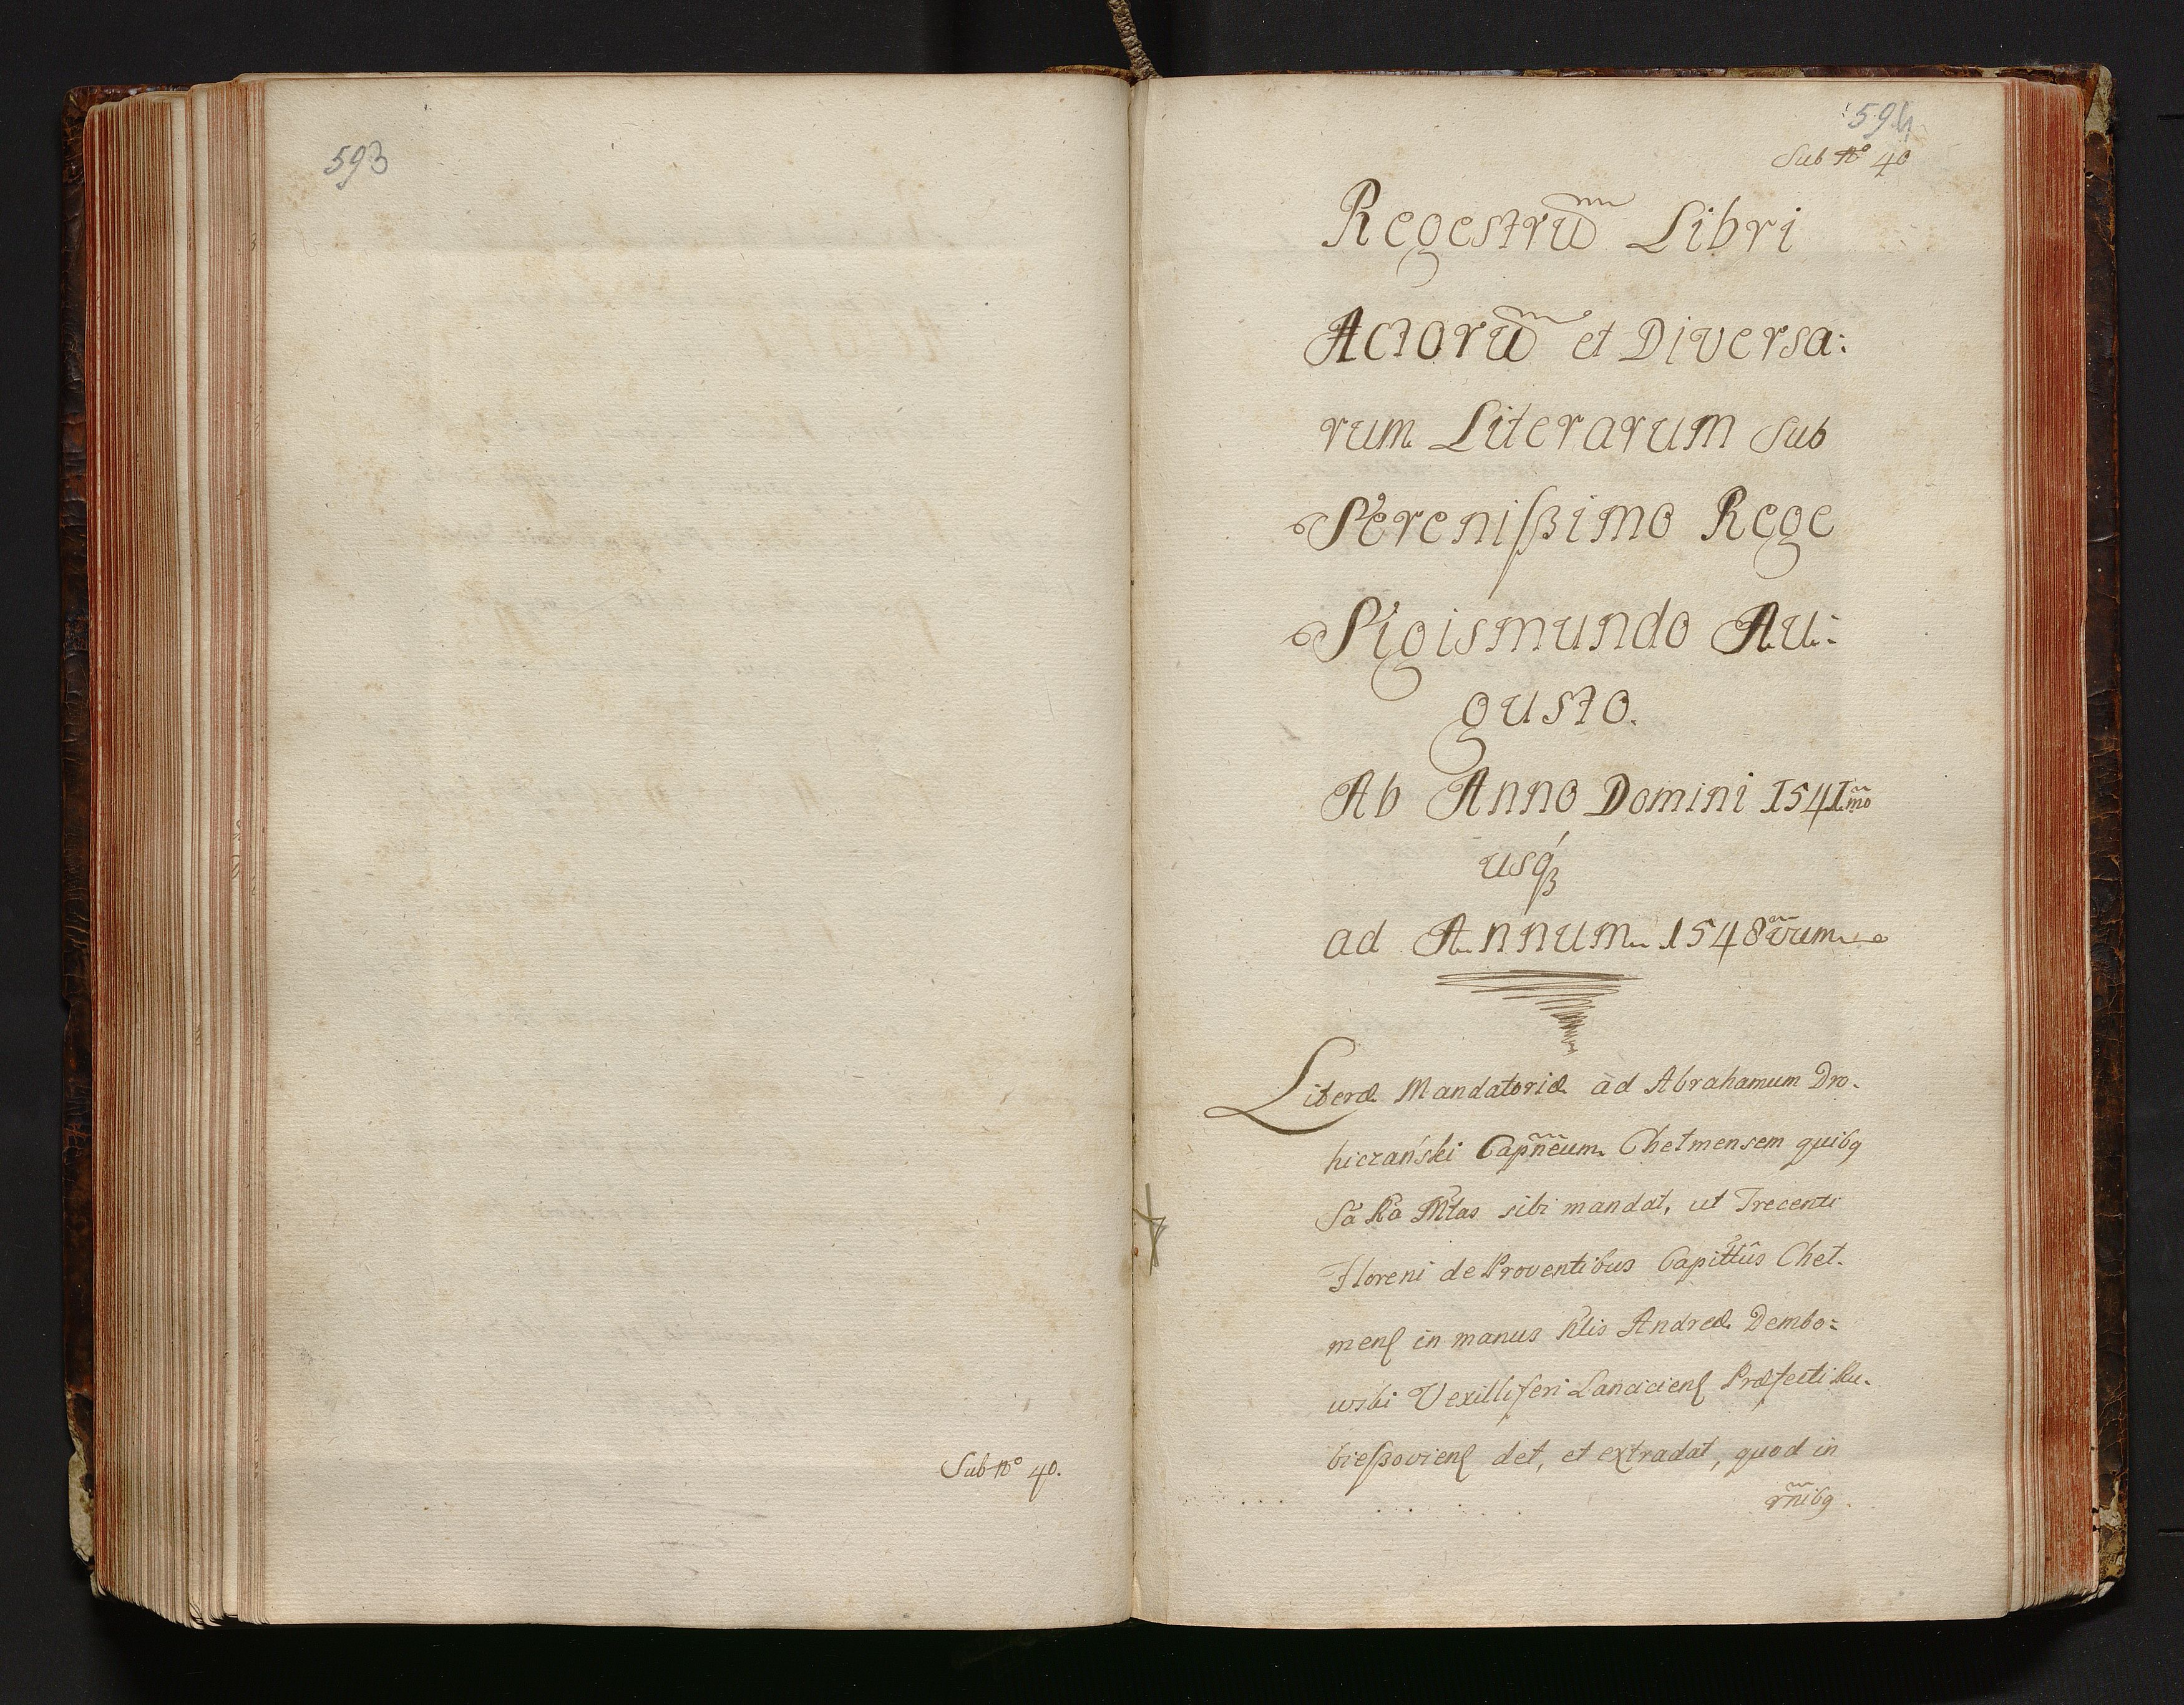 593
Sub No 40.
594
Sub No 40
Regestrū Libri
Actorū et Diversa:
rum Literarum Sub
Sereniſsimo Rege
Sigismundo Au:
gusto.
Ab Anno Domini 1541mo
usqꝫ
ad Annum 1548vum
Literæ Mandatoriæ ad Abrahamum Dro.
hiczański Capñeum Chełmensem quibꝯ
Sa Ra Mtas sibi mandat, ut Trecenti
Floreni de Proventibus Capittûs Cheł.
menſ in manus Andreæ Dembo=
wski Vexilliferi Lanciciensſ Præfecti Ru.
bieſsovienſ det, et extradat, quod in
rñibꝯ.